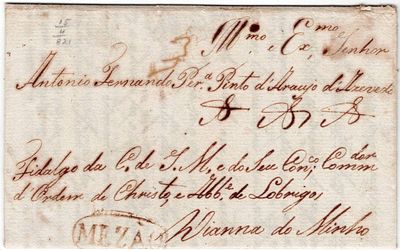 15
11
821
Illmo e Exmo Senhor
Antonio Fernando Per.a Pinto d'Araujo d'Azevedo
Fidalgo da C. de S. M. e do Seu Con.o Comm.dor
d'Ordem de Christo, e Abb.e de Lobrigos
Vianna do Minho
MEZÃO